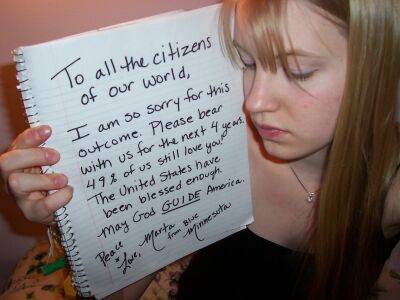 To all the citizens
of our world,
I am so sorry for this
outcome. Please bear
with us for the next 4 years.
49% of us still love you!
The United States have
been blessed enough.
May God GUIDE America.
Peace
& Love, Marta
from Blue
Minnesota